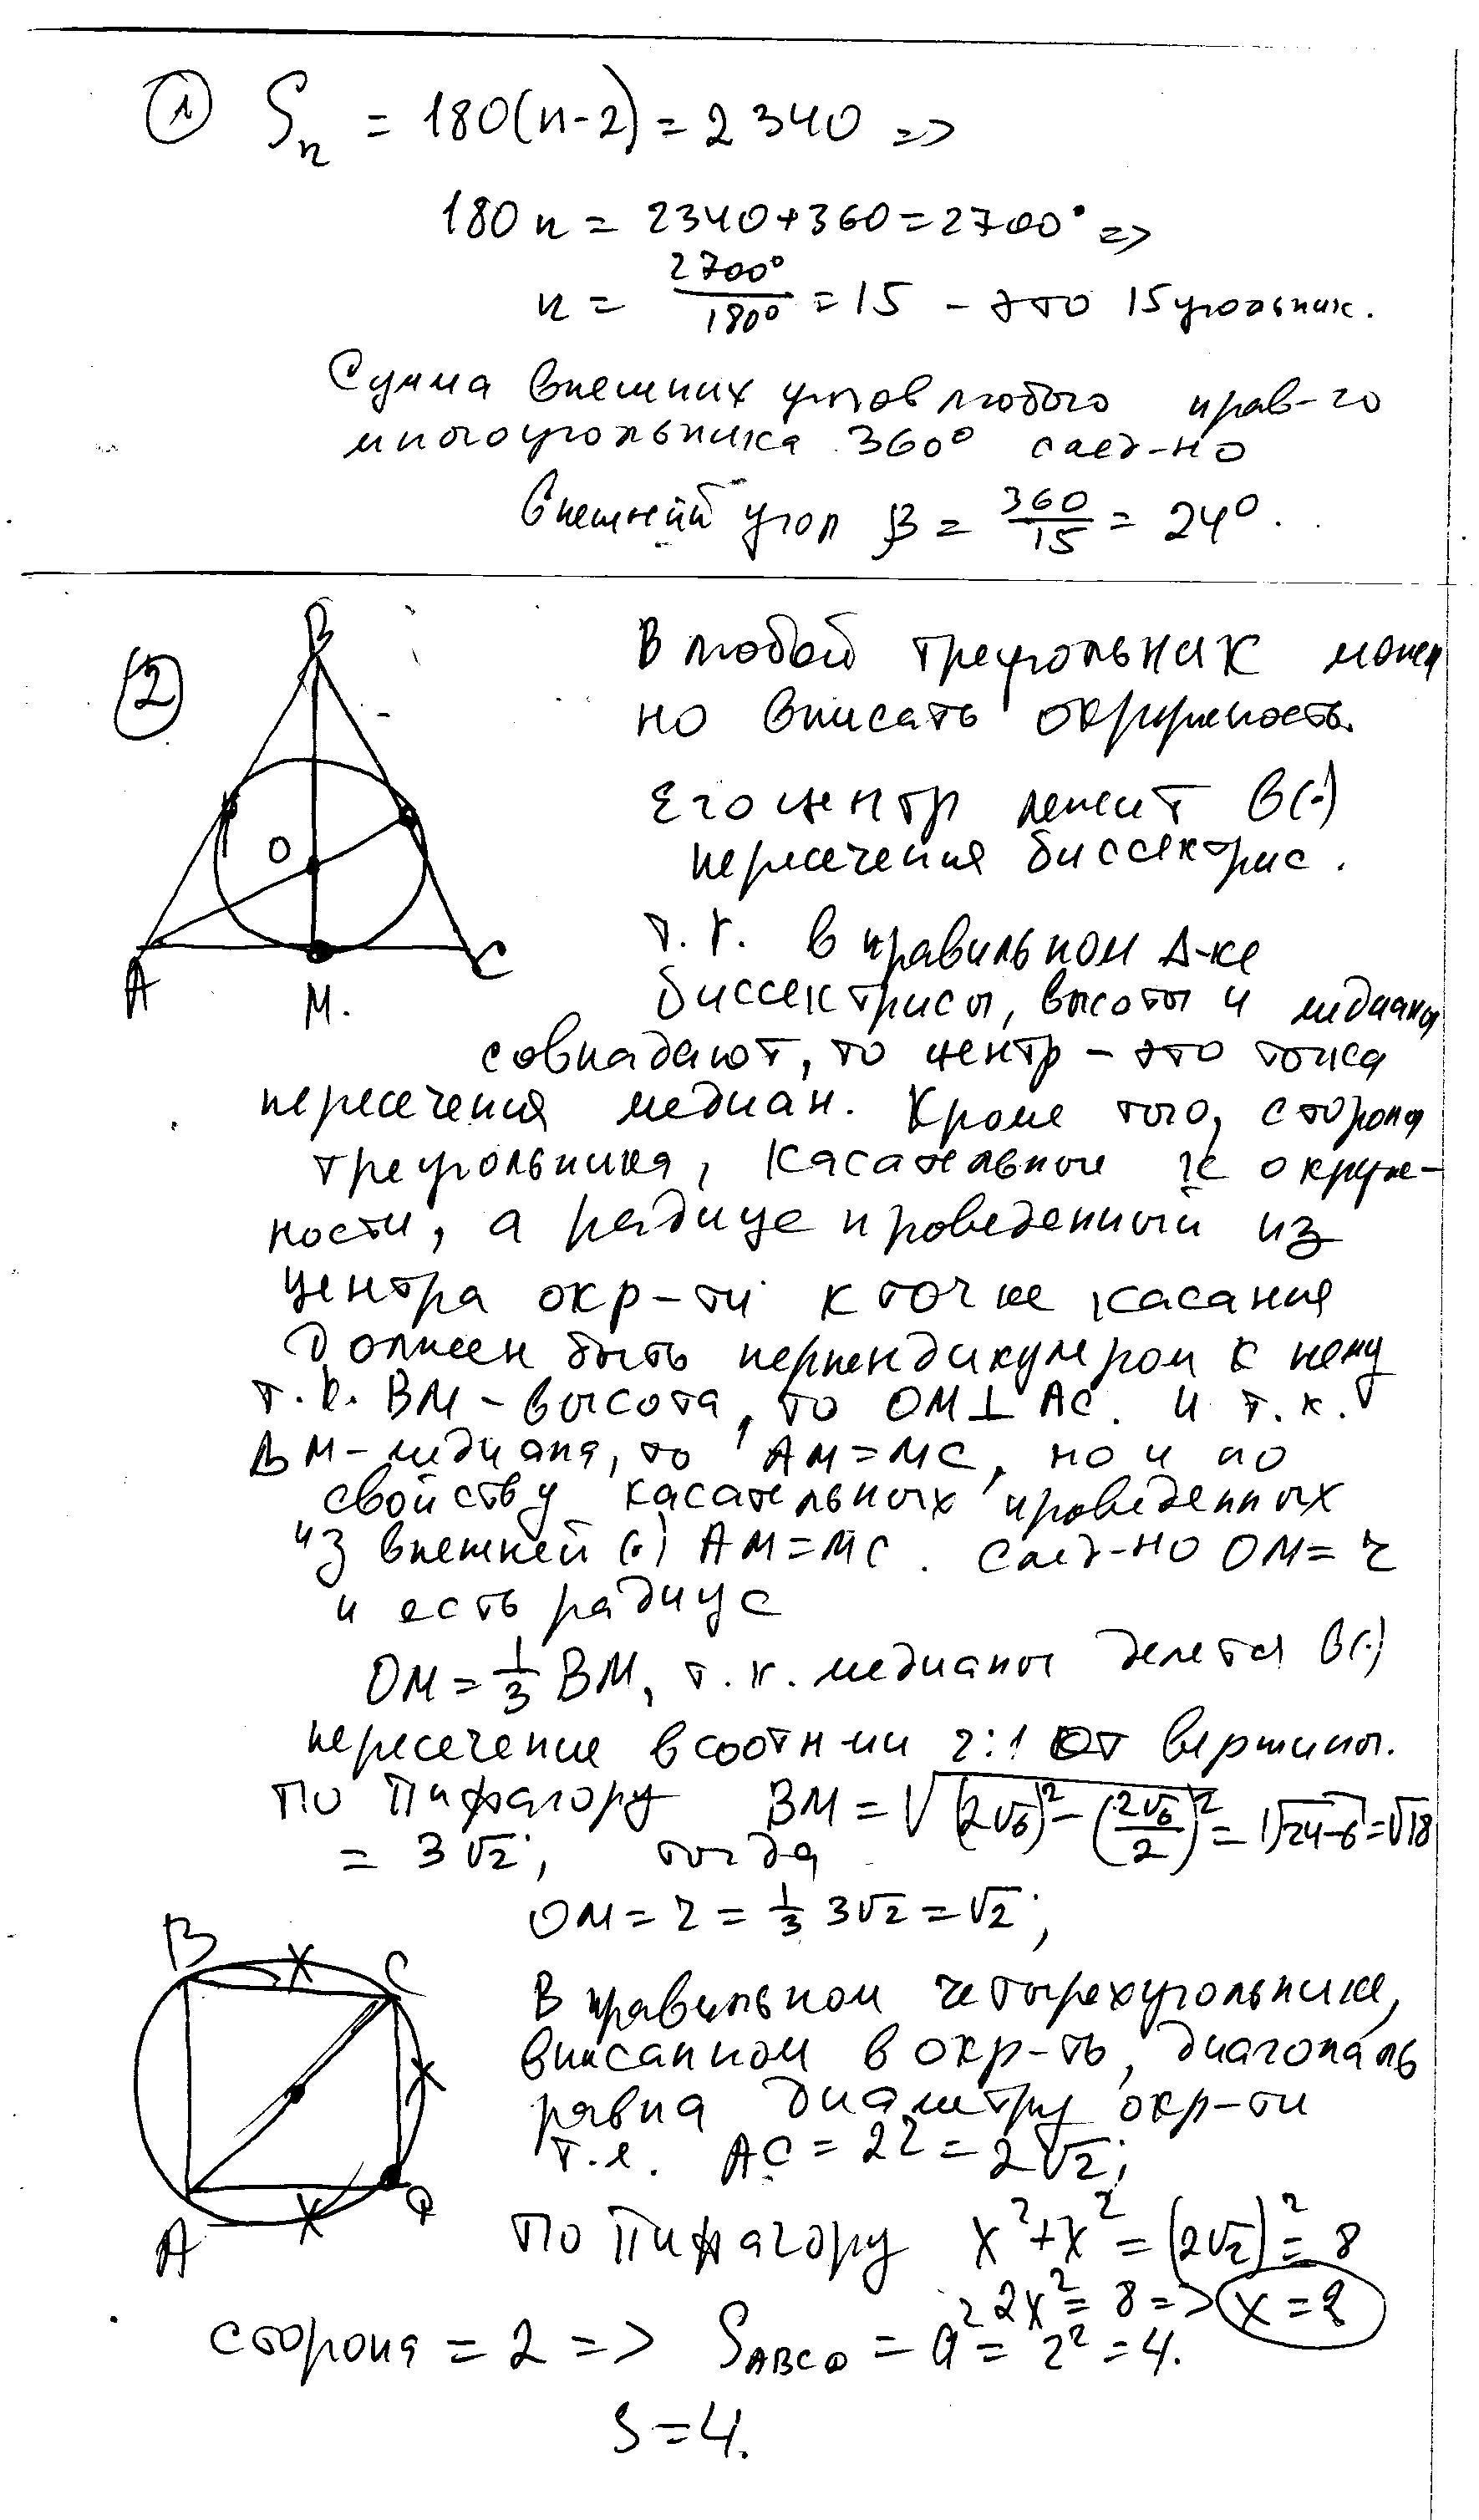 1 Sn = 180(n-2) = 2340 =>
180n = 2340+360 = 2700° =>
n = 2700°/180° = 15 - это 15угольник.
Сумма внешних углов любого прав-го
многоугольника 360° след-но
Внешний угол β = 360/15 = 24°.
2
B
O
A
M.
C
В любой треугольник можно
но вписать окружность.
Его центр лежит в(·)
пересечения биссектрис.
т.к. в правильном Δ-ке
биссектрисы, высоты и медианы
совпадают, то центр - это точка
пересечения медиан. Кроме того, сторона
треугольника, касательные к окруж-
ности, а радиус проведенный из
центра окр-ти к точке касания
должен быть перпендикуляром к нему
т.к. BM - высота, то OM⊥AC. и т.к.
BM - медиана, то AM=MC, но и по
свойству касательных проведенных
из внешней (·) AM=MC. След-но OM=r
и есть радиус
OM = 1/3 BM, т.к. медианы делятся в(·)
пересечение в соотн-ии 2:1 от вершины.
По Пифагору BM = √((2√6)² - (2√6/2)²) = √24-6 = √18
= 3√2; тогда
OM = r = 1/3 3√2 = √2;
B
x
C
x
A
x
D
В правильном четырехугольнике,
вписанном в окр-ть, диагональ
равна диаметру окр-ти
т.е. AC = 2r = 2√2;
По Пифагору x²+x² = (2√2)² = 8
2x² = 8 => x = 2
сторона = 2 => S ABCD = a² = 2² = 4.
S = 4.